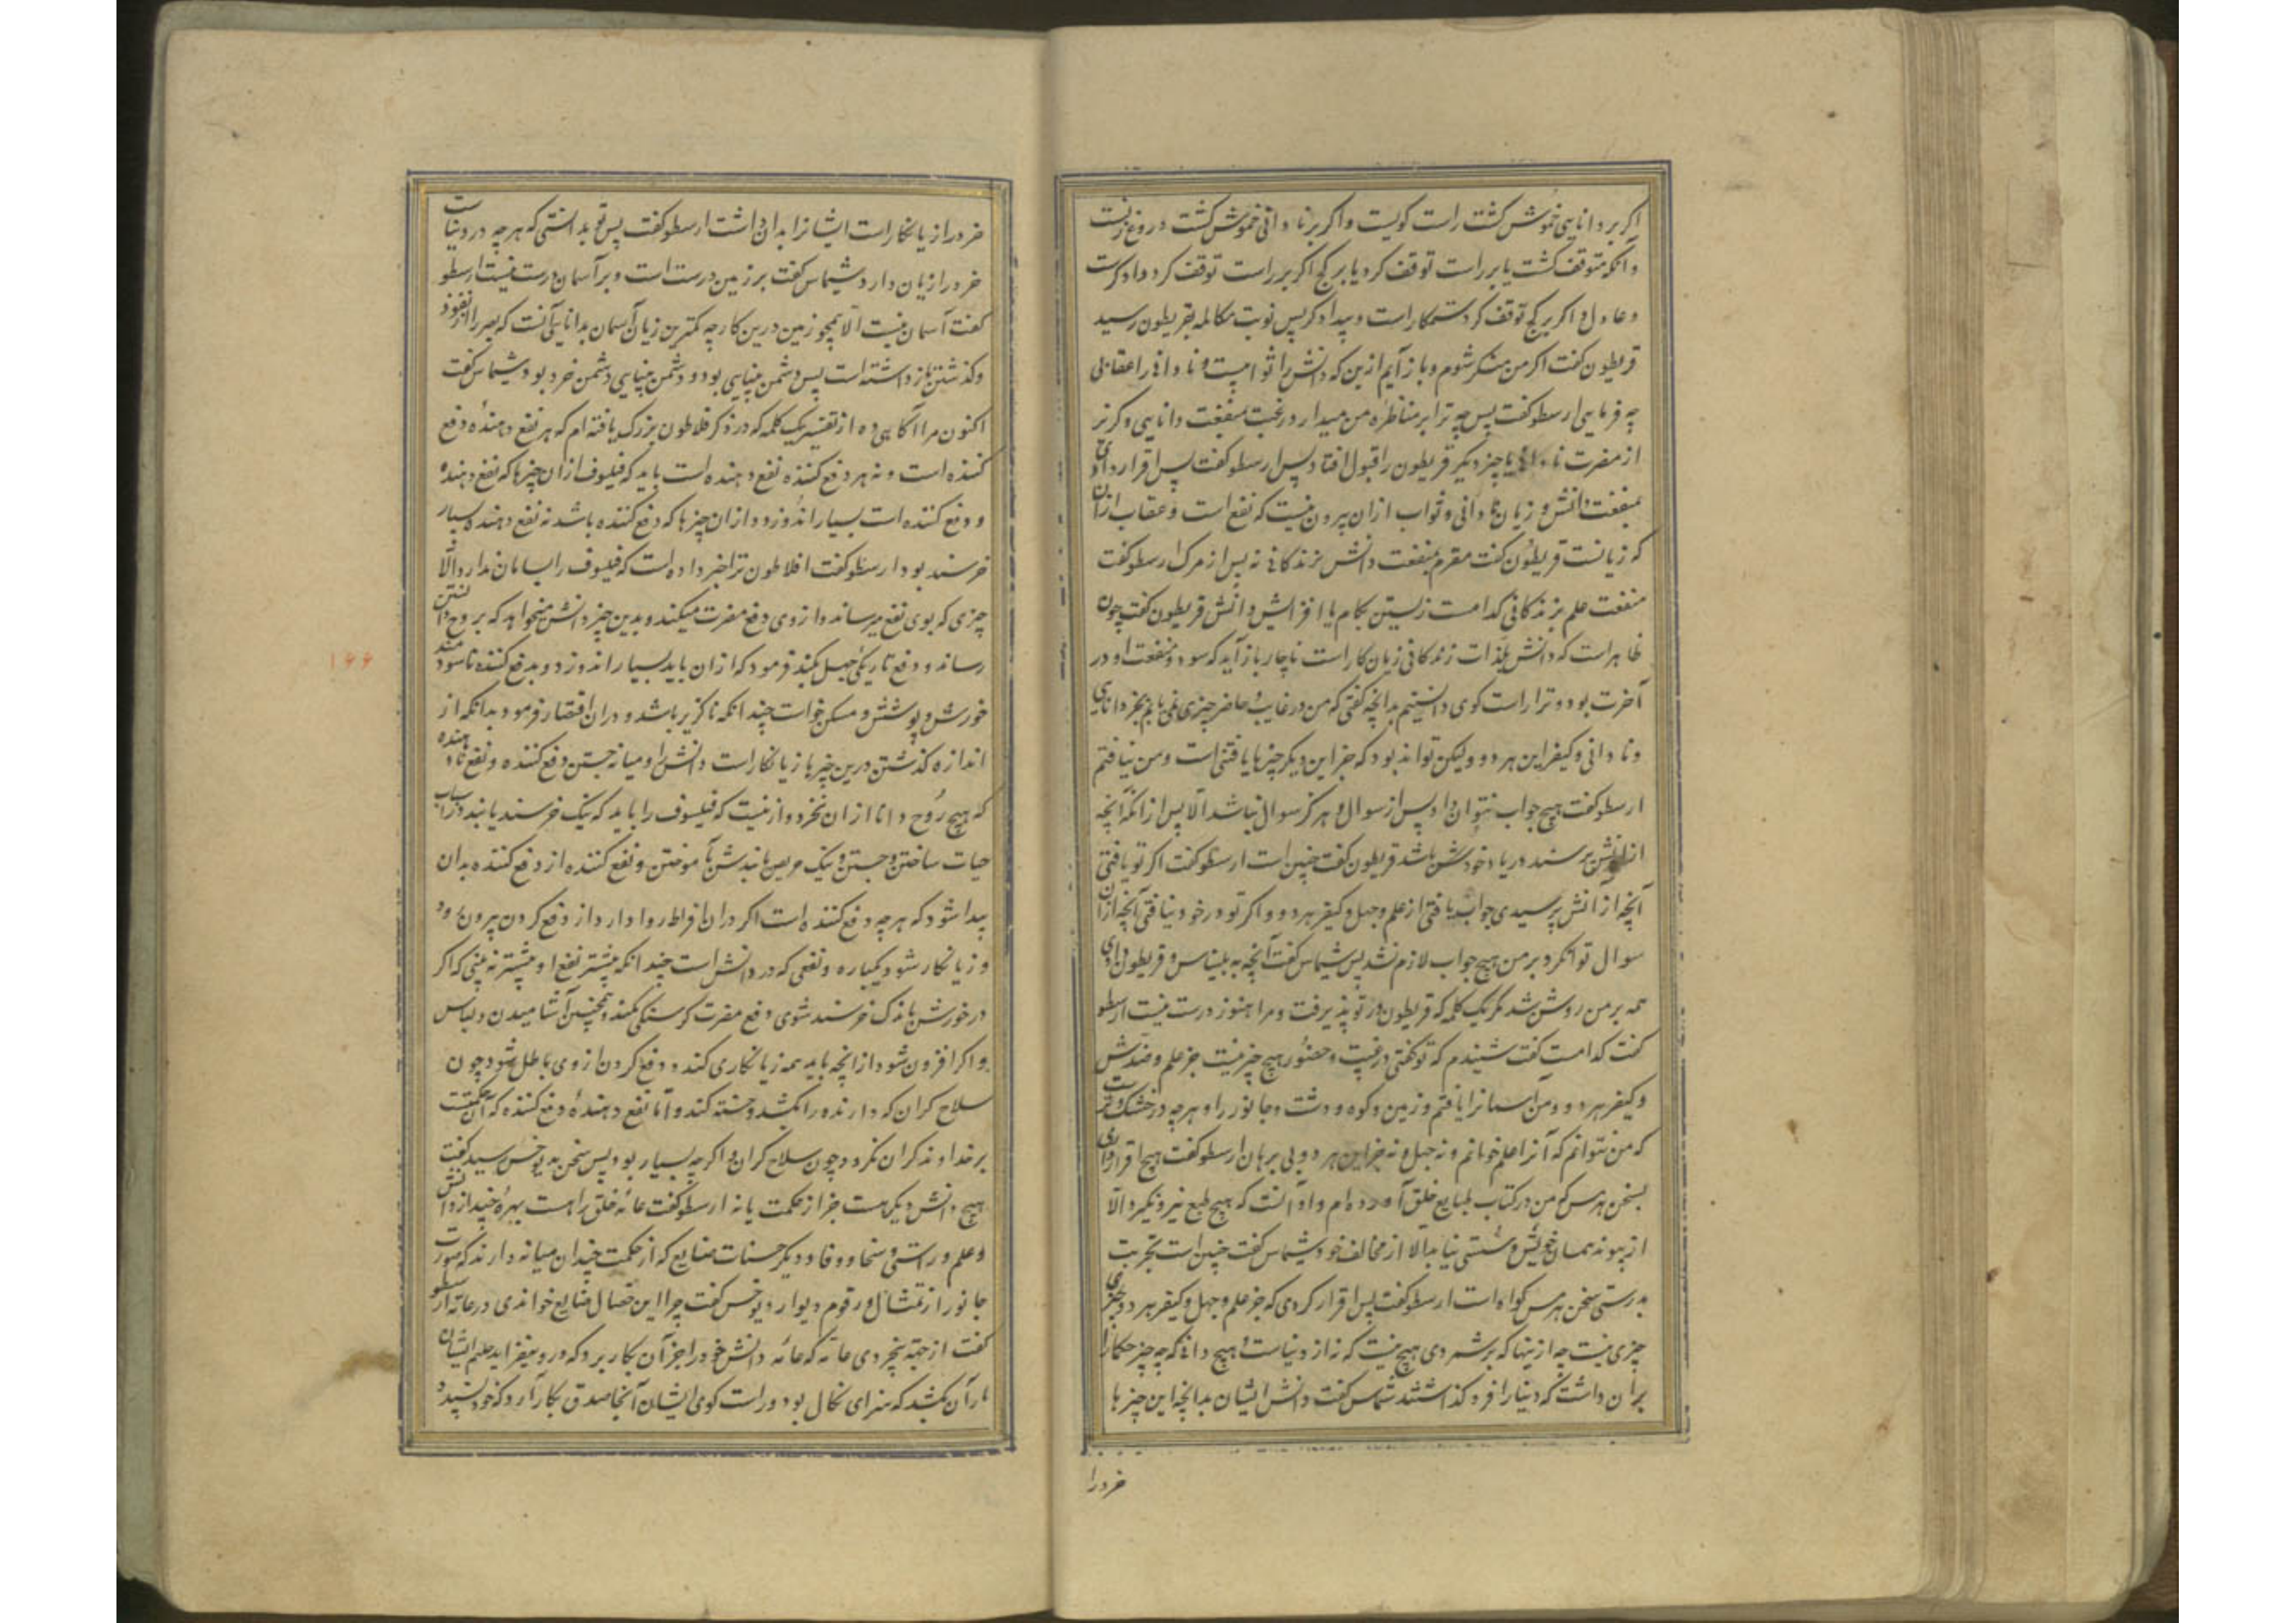 اکر بر دانایی خموش کشت راست کویست و اکر بر نادانی خموش کشت دروغ زنست
وانکه متوقف کشت یا بر راست توقف کرد یا بر کج اکر بر راست توقف کرد دادکرست
و عادل و اکر بر کج توقف کرد ستمکار است و بیدادکر پس نوبت مکالمه بقریطون رسید
قریطون کفت اکر من منکر شوم و باز آیم ازین که دانش را ثوابیست و نادانی را عقابی
چه فرمایی ارسطو کفت پس چه ترا بر مناظره من میدارد رغبت منفعت دانایی و کریز
از مضرت نادانی یا چیز دیکر قریطون را قبول افتاد پس ارسطو کفت پس اقرار دادی
بمنفعت دانش و زیان نادانی و ثواب ازان بیرون نیست که نفع است و عقاب ازان
که زیانست قریطون کفت مقرم بمنفعت دانش بزندکانی نه پس از مرک ارسطو کفت
منفعت علم بزندکانی کدامست زیستن بکام یا افزایش دانش قریطون کفت چون
ظاهر است که دانش بلذات زندکانی زیان کار است ناچار باز آید که سود و منفعت او در
آخرت بود و ترا راست کوی دانستیم بدانچه کفتی که من در غایب و حاضر چیزی نمی یابم بجز دانایی
و نادانی و کیفر این هر دو ولیکن تواند بود که جز این دیکر چیزها یافتنی است و من نیافتم
ارسطو کفت هیچ جواب نتوان داد پس از سوال و هرکز سوال نباشد الا پس ازانکه آنچه
ازانش پرسند در یاد خودش باشد قریطون کفت چنین است ارسطو کفت اکر تو یافتی
آنچه ازانش پرسیدی جواب یافتی از علم و جهل و کیفر هر دو و اکر تو در خود نیافتی آنچه ازان
سوال توانکرد بر من هیچ جواب لازم نشد پس شیماس کفت آنچه به بلیناس و قریطون دادی
همه بر من روشن شد مکر یک کلمه که قریطون از تو پذیرفت و مرا هنوز درست نیست ارسطو
کفت کدامست کفت شنیدم که تو کفتی در غیبت و حضور هیچ چیز نیست جز علم و ضدش
و کیفر هر دو و من آسمانرا یافتم و زمین و کوه و دشت و جانور را و هرچه در خشک و ترست
که من نتوانم که آنرا علم خوانم و نه جهل و نه جز این هر دو بی برهان ارسطو کفت هیچ اقرار داری
بسخن هرمس که من در کتاب طبایع خلق آورده ام و او آنست که هیچ طبع نیرو نکیرد الا
از پیوند همسان خویش و سستی نیابد الا از مخالف خود شیماس کفت چنین است تجربت
بدرستی سخن هرمس کواه است ارسطو کفت پس اقرار کردی که جز علم و جهل و کیفر هر دو دیکر
چیزی نیست چه ازینها که برشمردی هیچ نیست که نه از دنیاست هیچ دانی که چه چیز حکما را
بر آن داشت که دنیا را فرو کذاشتند شماس کفت دانش ایشان بدانچه این چیزها
خرد را
خرد را زیانکار است ایشانرا بدان داشت ارسطو کفت پس تو بدانستی که هرچه در دنیاست
خرد را زیان دارد شیماس کفت بر زمین درست است و بر آسمان درست نیست ارسطو
کفت آسمان نیست الا همچو زمین درین کار چه کمترین زیان آسمان بدانایی آنست که بصر را از نفوذ
و کذشتن باز داشته است پس دشمن بینایی بود و دشمن بینایی دشمن خرد بود شیماس کفت
اکنون مرا آکاهی ده از تفسیر یک کلمه که در ذکر فلاطون بزرک یافته ام که هر نفع دهنده دفع
کننده است و نه هر دفع کننده نفع دهنده است باید که فیلسوف ازان چیزها که نفع دهنده
و دفع کننده است بسیار اندوزد و ازان چیزها که دفع کننده باشد نه نفع دهنده بسیار
خرسند بود ارسطو کفت افلاطون ترا خبر داده است که فیلسوف را بسامان ندارد الا
چیزی که بوی نفع میرساند و از وی دفع مضرت میکند و بدین چیز دانش میخواهد که بروح دانستن
رساند و دفع تاریکی جهل بکند فرمود که ازان باید بسیار اندوزد و بدفع کننده ناسودمند
خورش و پوشش و مسکن خواست چندانکه ناکزیر باشد و دران اقتصار فرمود بدانکه از
اندازه کذشتن درین چیزها زیانکار است دانش را و میانه جستن دفع کننده و نفع نادهنده
که هیچ روح دانا ازان نخرد و از نیست که فیلسوف را باید که نیک خرسند یابند در اسباب
حیات ساختن و جستن و نیک حریص یابندش بآموختن و نفع کننده از دفع کننده بدان
پیدا شود که هرچه دفع کننده است اکر دران افراط روا دارد از دفع کردن بیرون رود
و زیانکار شود یکباره و نفعی که در دانش است چندانکه بیشتر نفع او بیشتر نه بینی که اکر
در خورش باندک خرسند شوی دفع مضرت کرسنکی بکند و همچنین آشامیدن و لباس
و اکر افزون شود ازانچه باید همه زیانکاری کند و دفع کردن از وی باطل شود چون
سلاح کران که دارنده را بکشد و خسته کند و اما نفع دهنده دفع کننده که آن حکمتست
بر خداوند کران نکردد چون سلاح کران و اکرچه بسیار بود پس سخن به یوخس رسید کفت
هیچ دانش دیکر هست جز از حکمت یا نه ارسطو کفت عامه خلق راهست بهره چند از دانش
و علم و راستی و سخا و وفا و دیکر حسنات ضایع که از حکمت چندان میانه دارند که صورت
جانور از تمثال و رقوم دیوار دیوخس کفت چرا این خصال ضایع خواندی در عامه ارسطو
کفت از جهة بیخردی عامه که عامه دانش خود را جز آن بکار برد که در و نیفزاید علم ایشان
بارآن کشد که سزای نکال بود و راست کوی ایشان آنجا صدق بکار آرد که خود نپسندد
۱۶۶